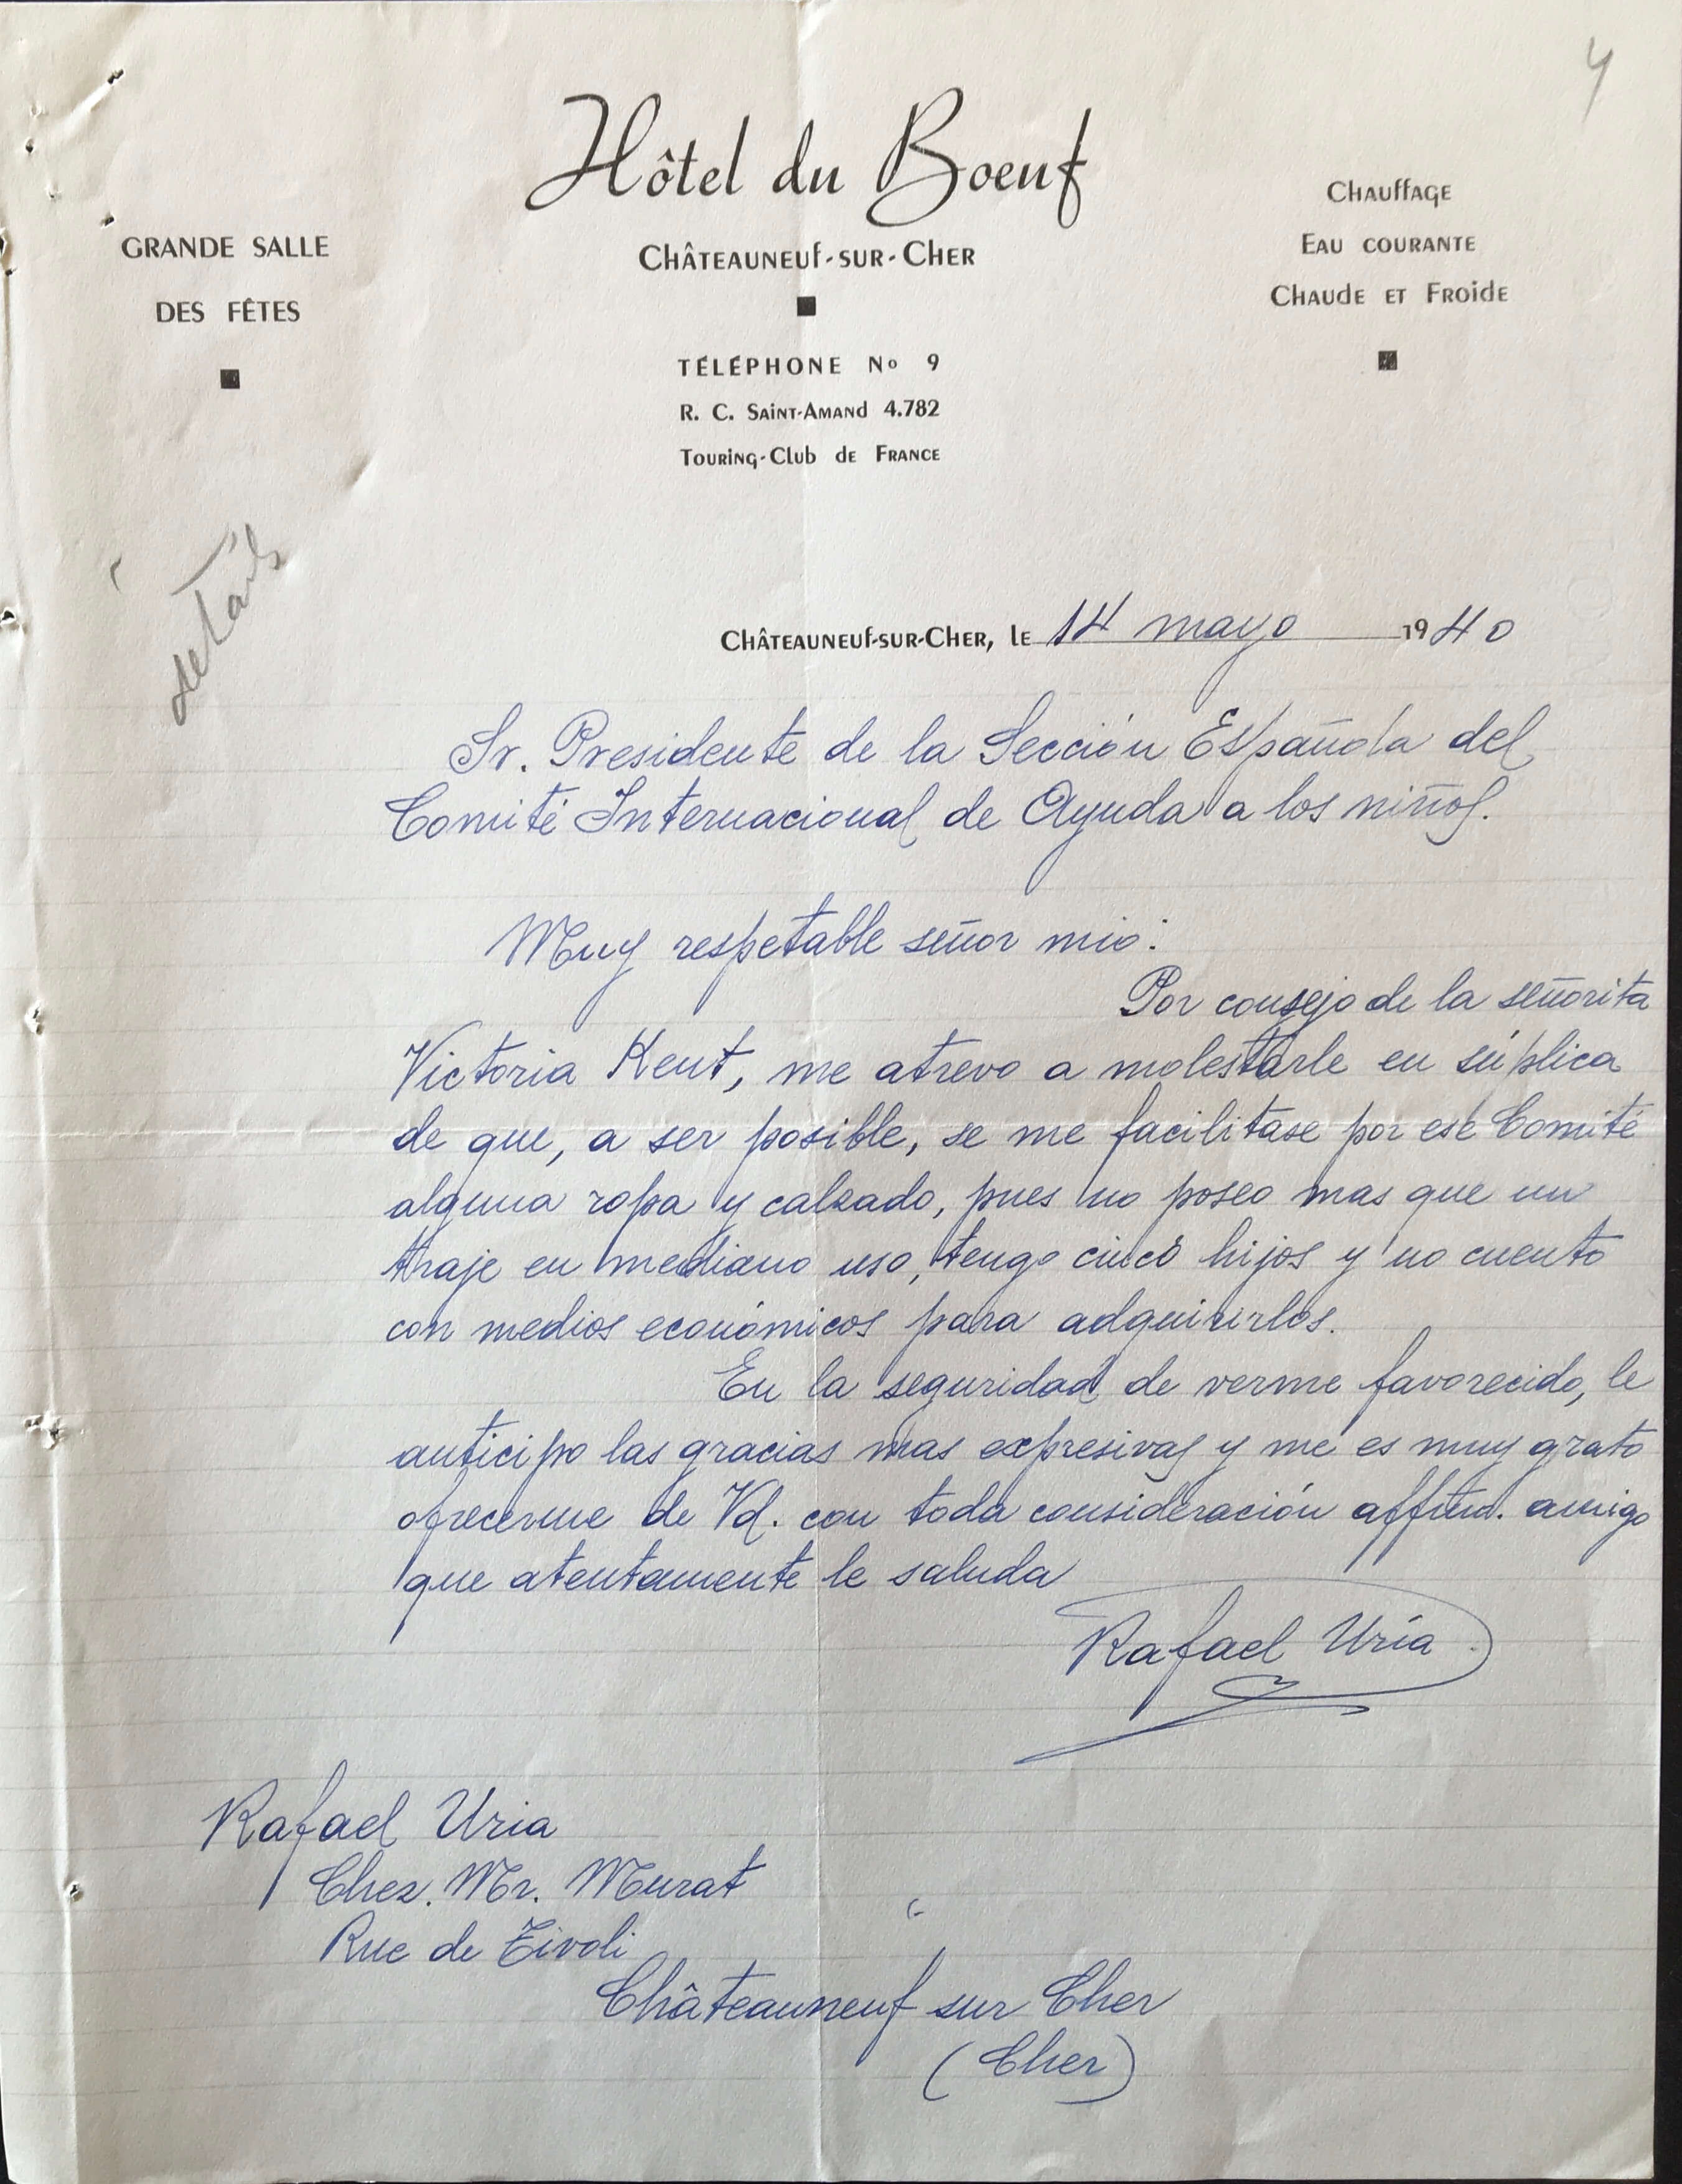 4
Hôtel du Boeuf
Châteauneuf-sur-Cher
TÉLÉPHONE No 9
R. C. Saint-Amand 4.782
Touring-Club de France
GRANDE SALLE
DES FÊTES
Chauffage
Eau courante
Chaude et Froide
details
Châteauneuf-sur-Cher, le 14 mayo 1940
Sr. Presidente de la Sección Española del
Comité Internacional de Ayuda a los niños.
Muy respetable señor mio:
Por consejo de la señorita
Victoria Kent, me atrevo a molestarle en súplica
de que, a ser posible, se me facilitase por ese Comité
alguna ropa y calzado, pues no poseo mas que un
traje en mediano uso, tengo cinco hijos y no cuento
con medios económicos para adquirirlos.
En la seguridad de verme favorecido, le
anticipo las gracias mas expresivas y me es muy grato
ofrecerme de Vd. con toda consideración affmo. amigo
que atentamente le saluda
Rafael Uría
Rafael Uria
Chez. Mr. Murat
Rue de Tivoli
Châteauneuf sur Cher
(Cher)